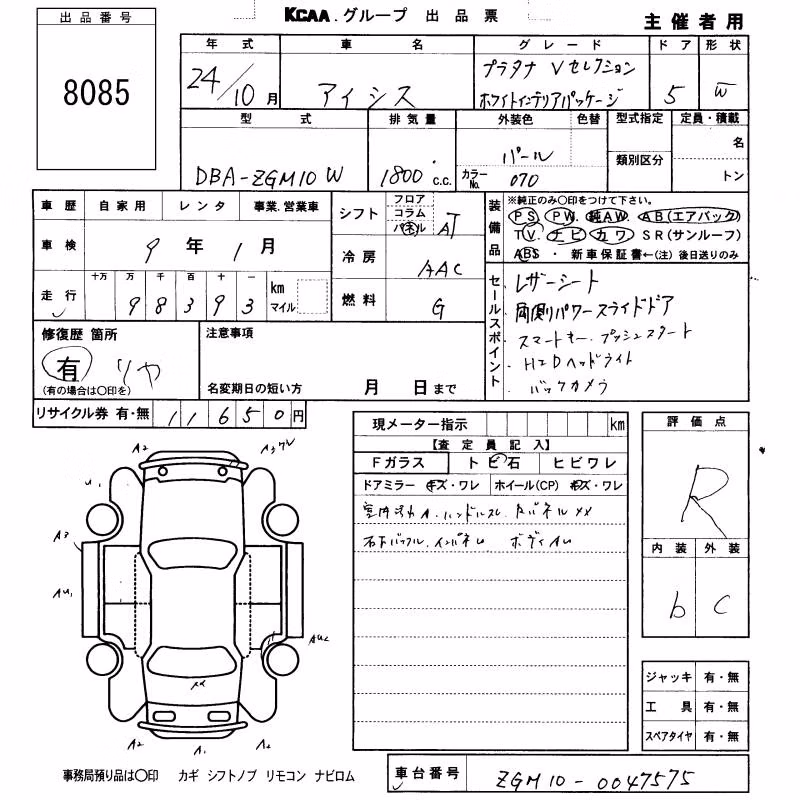 出品番号
8085
KCAA.グループ 出品票
主催者用
年式 車名 グレード ドア 形状
24/10月 アイシス プラタナ Vセレクション ホワイトインテリアパッケージ 5 W
型式 排気量 外装色 色替 型式指定 定員・積載
DBA-ZGM10W 1800 c.c. パール 名
カラーNo. 070 類別区分 トン
車歴 自家用 レンタ 事業.営業車
車検 9年1月
走行 十万 万 千 百 十 一 km マイル
98393
シフト フロア コラム パネル AT
冷房 AAC
燃料 G
装備品 ※純正のみ○印をつけて下さい。
PS PW 純AW AB(エアバック)
TV ナビ カワ SR(サンルーフ)
ABS ・ 新車保証書←(注)後日送りのみ
セールスポイント
レザーシート
両側パワースライドドア
スマートキー.プッシュスタート
HIDヘッドライト
バックカメラ
修復歴 箇所 注意事項
有 リヤ
(有の場合は○印を) 名変期日の短い方 月 日まで
リサイクル券 有・無 11650円
現メーター指示 km
【査定員記入】
Fガラス トビ石 ヒビワレ
ドアミラー キズ・ワレ ホイール(CP) キズ・ワレ
室内汚れA.ハンドルスレ
評価点
R
内装 外装
b C
A2 A3
U1
A3
AU1
AU2
A2 A1 A2
ジャッキ 有・無
工具 有・無
スペアタイヤ 有・無
事務局預り品は○印 カギ シフトノブ リモコン ナビロム
車台番号 ZGM10-0047575